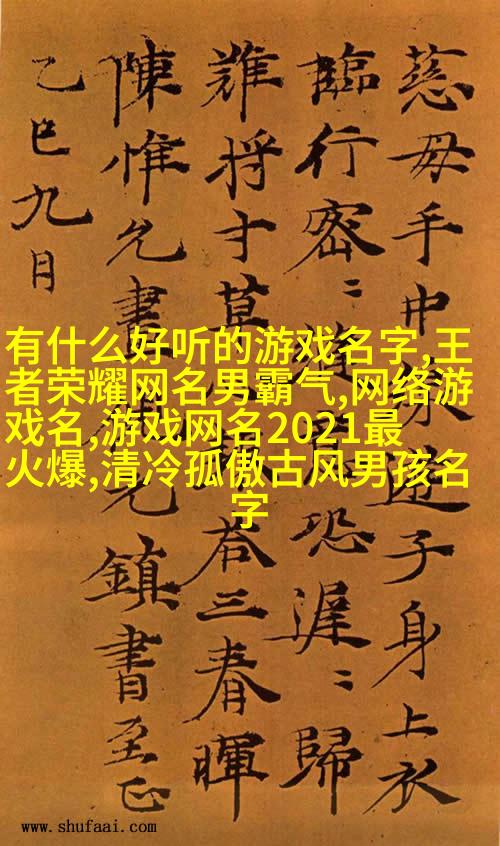 慈母手中線遊子身上衣
臨行密〻縫 恐遲〻歸
難将寸草 荅三春暉
陳惟允書 元鎮書至正
乙巳九月
有什么好听的游戏名字,王
者荣耀网名男霸气,网络游
戏名,游戏网名2021最
火爆,清冷孤傲古风男孩名
字
www.shufaai.com